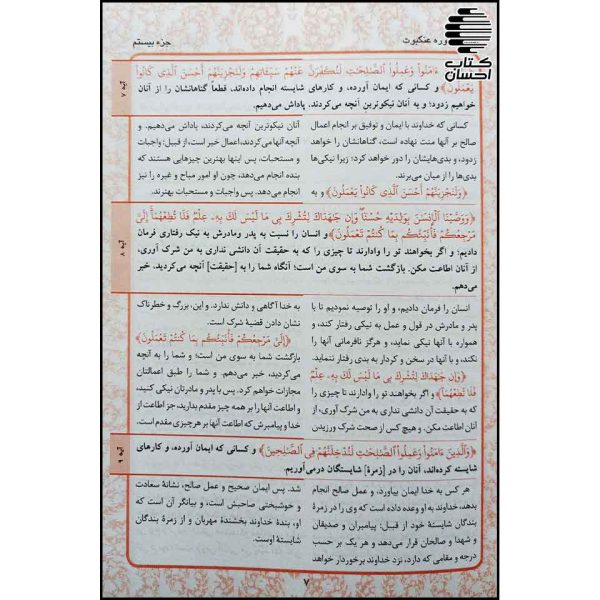 کتاب
احسان
سوره عنکبوت
جزء بیستم
ءَامَنُواْ وَعَمِلُواْ ٱلصَّٰلِحَٰتِ لَنُكَفِّرَنَّ عَنْهُمْ سَيِّـَٔاتِهِمْ وَلَنَجْزِيَنَّهُمْ أَحْسَنَ ٱلَّذِى كَانُواْ
يَعْمَلُونَ﴾ و کسانی که ایمان آورده، و کارهای شایسته انجام داده‌اند، قطعاً گناهانشان را از آنان
خواهیم زدود؛ و به آنان نیکوترین آنچه می‌کردند. پاداش می‌دهیم.
آیه ۷
کسانی که خداوند با ایمان و توفیق بر انجام اعمال
صالح بر آنها منت نهاده است، گناهانشان را خواهد
زدود، و بدی‌هایشان را دور خواهد کرد؛ زیرا نیکی‌ها
بدی‌ها را از میان می‌برند.
﴿وَلَنَجْزِيَنَّهُمْ أَحْسَنَ ٱلَّذِى كَانُواْ يَعْمَلُونَ﴾ و به
آنان نیکوترین آنچه می‌کردند، پاداش می‌دهیم. و
آنچه آنها می‌کردند، اعمال خیر است، از قبیل: واجبات
و مستحبات، پس اینها بهترین چیزهایی هستند که
بنده انجام می‌دهد، چون او امور مباح و غیره را نیز
انجام می‌دهد. پس واجبات و مستحبات بهترند.
﴿وَوَصَّيْنَا ٱلْإِنسَٰنَ بِوَٰلِدَيْهِ حُسْنًا وَإِن جَٰهَدَاكَ لِتُشْرِكَ بِى مَا لَيْسَ لَكَ بِهِۦ عِلْمٌ فَلَا تُطِعْهُمَآ إِلَىَّ
مَرْجِعُكُمْ فَأُنَبِّئُكُم بِمَا كُنتُمْ تَعْمَلُونَ﴾ و انسان را نسبت به پدر ومادرش به نیک رفتاری فرمان
دادیم؛ و اگر بخواهند تو را وادارند تا چیزی را که به حقیقت آن دانشی نداری به من شرک آوری،
از آنان اطاعت مکن. بازگشت شما به سوی من است؛ آنگاه شما را به [حقیقت] آنچه می‌کردید، خبر
می‌دهم.
آیه ۸
انسان را فرمان دادیم، و او را توصیه نمودیم تا با
پدر و مادرش در قول و عمل به نیکی رفتار کند، و
همواره با آنها نیکی نماید، و هرگز نافرمانی آنها را
نکند، و با آنها در سخن و کردار به بدی رفتار ننماید.
﴿وَإِن جَٰهَدَاكَ لِتُشْرِكَ بِى مَا لَيْسَ لَكَ بِهِۦ عِلْمٌ
فَلَا تُطِعْهُمَآ﴾ و اگر بخواهند تو را وادارند تا چیزی را
که به حقیقت آن دانشی نداری به من شرک آوری، از
آنان اطاعت مکن. و هیچ کس از صحت شرک ورزیدن
به خدا آگاهی و دانش ندارد. و این، بزرگ و خطرناک
نشان دادن قضیهٔ شرک است.
﴿إِلَىَّ مَرْجِعُكُمْ فَأُنَبِّئُكُم بِمَا كُنتُمْ تَعْمَلُونَ﴾
بازگشت شما به سوی من است؛ و شما را به آنچه
می‌کردید، خبر می‌دهم. و شما را طبق اعمالتان
مجازات خواهم کرد. پس با پدر و مادرتان نیکی کنید،
و اطاعت آنها را بر همه چیز مقدم بدارید، جز اطاعت از
خدا و پیامبرش که اطاعت آنها بر هر چیزی مقدم است.
﴿وَٱلَّذِينَ ءَامَنُواْ وَعَمِلُواْ ٱلصَّٰلِحَٰتِ لَنُدْخِلَنَّهُمْ فِى ٱلصَّٰلِحِينَ﴾ و کسانی که ایمان آورده، و کارهای
شایسته کرده‌اند، آنان را در [زمرهٔ] شایستگان درمی‌آوریم.
آیه ۹
هر کس به خدا ایمان بیاورد، و عمل صالح انجام
بدهد، خداوند به او وعده داده است که وی را در زمرهٔ
بندگان شایستهٔ خود از قبیل: پیامبران و صدیقان
و شهدا و صالحان قرار می‌دهد و هر یک بر حسب
درجه و مقامی که دارد، نزد خداوند برخوردار خواهد
شد. پس ایمان صحیح و عمل صالح، نشانهٔ سعادت
و خوشبختی صاحبش است، و بیانگر آن است که
او، بندهٔ خداوند بخشندهٔ مهربان و از زمرهٔ بندگان
شایستهٔ اوست.
۷